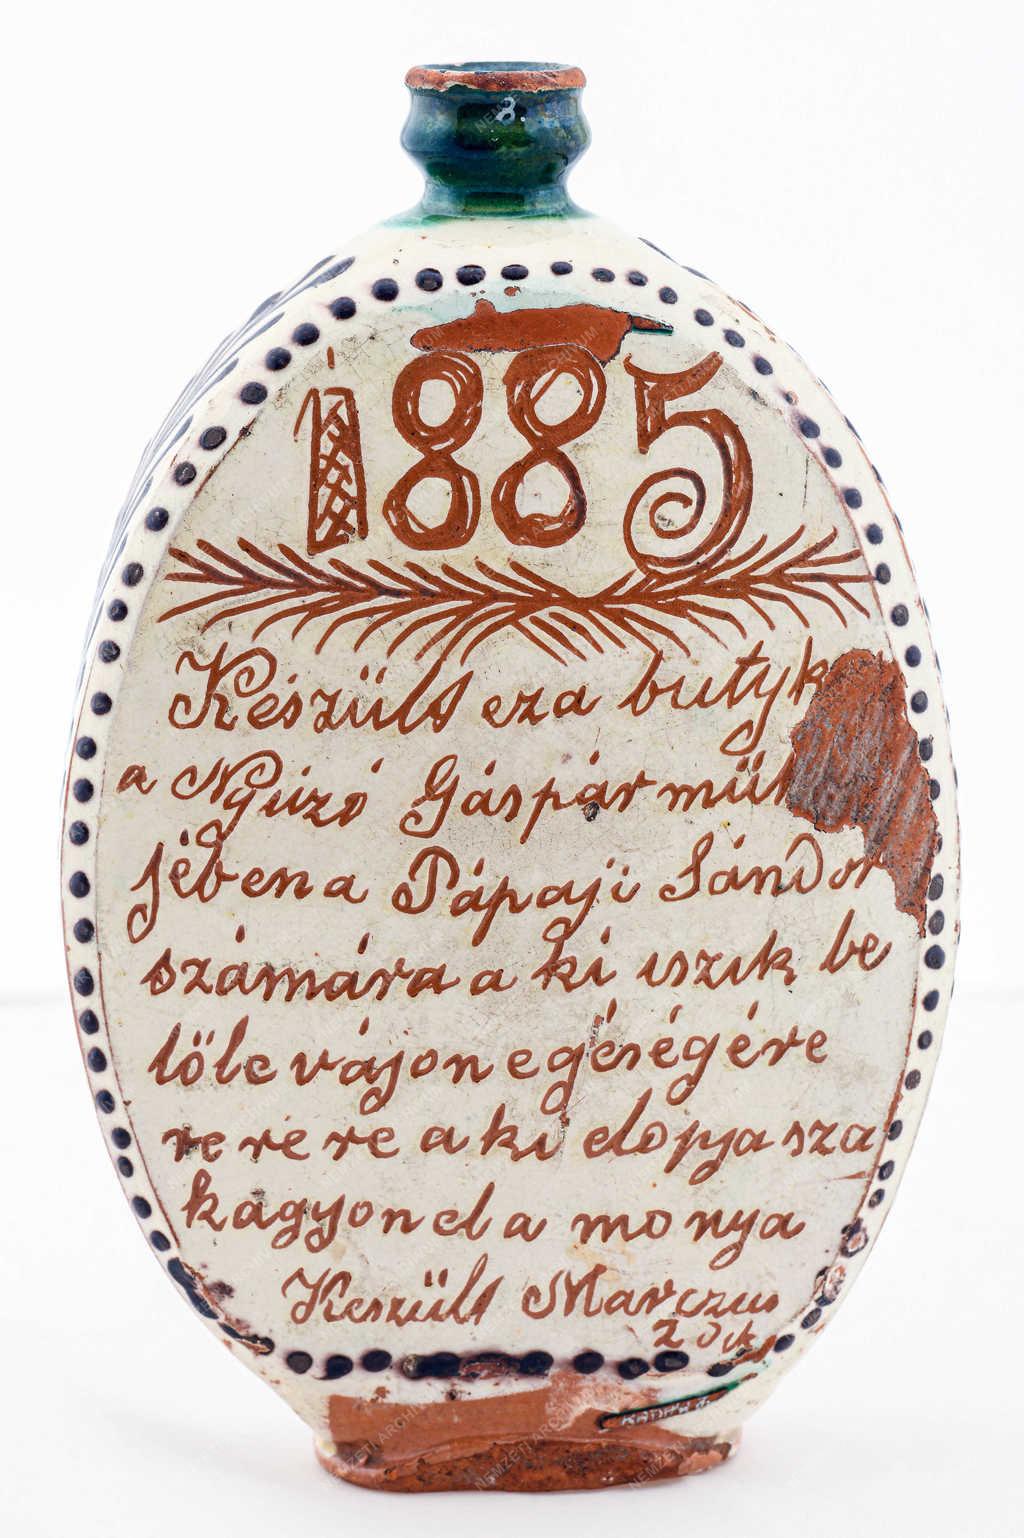 8.
1885
Készült eza butyk
a Nyúzó Gáspár mün
jében a Pápaji Sándor
számára a ki iszik be
lőle vájon egéségére
re re re re a ki elopja sza
kagyon el a monya
Keszült Marczus
20ik